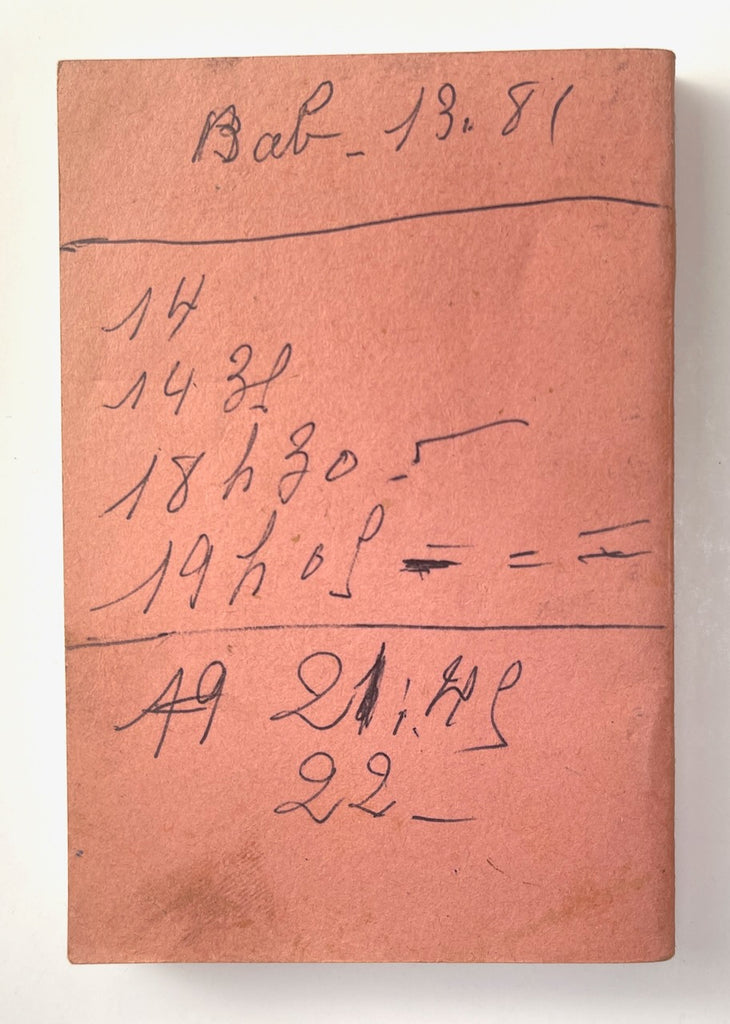 Bab - 13. 81
14
14 35
18 h 30 -
19 h 05 = = =
19 21:45
22 -